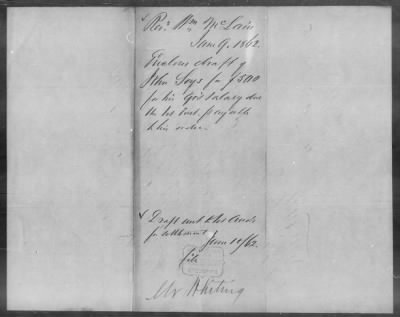 Rev. Wm McLain
Jany 9. 1862.
Encloses draft of
John Seys for $500
for his Govt Salary due
the 1st Inst. payable
to his order.
Draft sent to 1st Audr
for settlement
Jany 10/62.
file
Mr Whiting